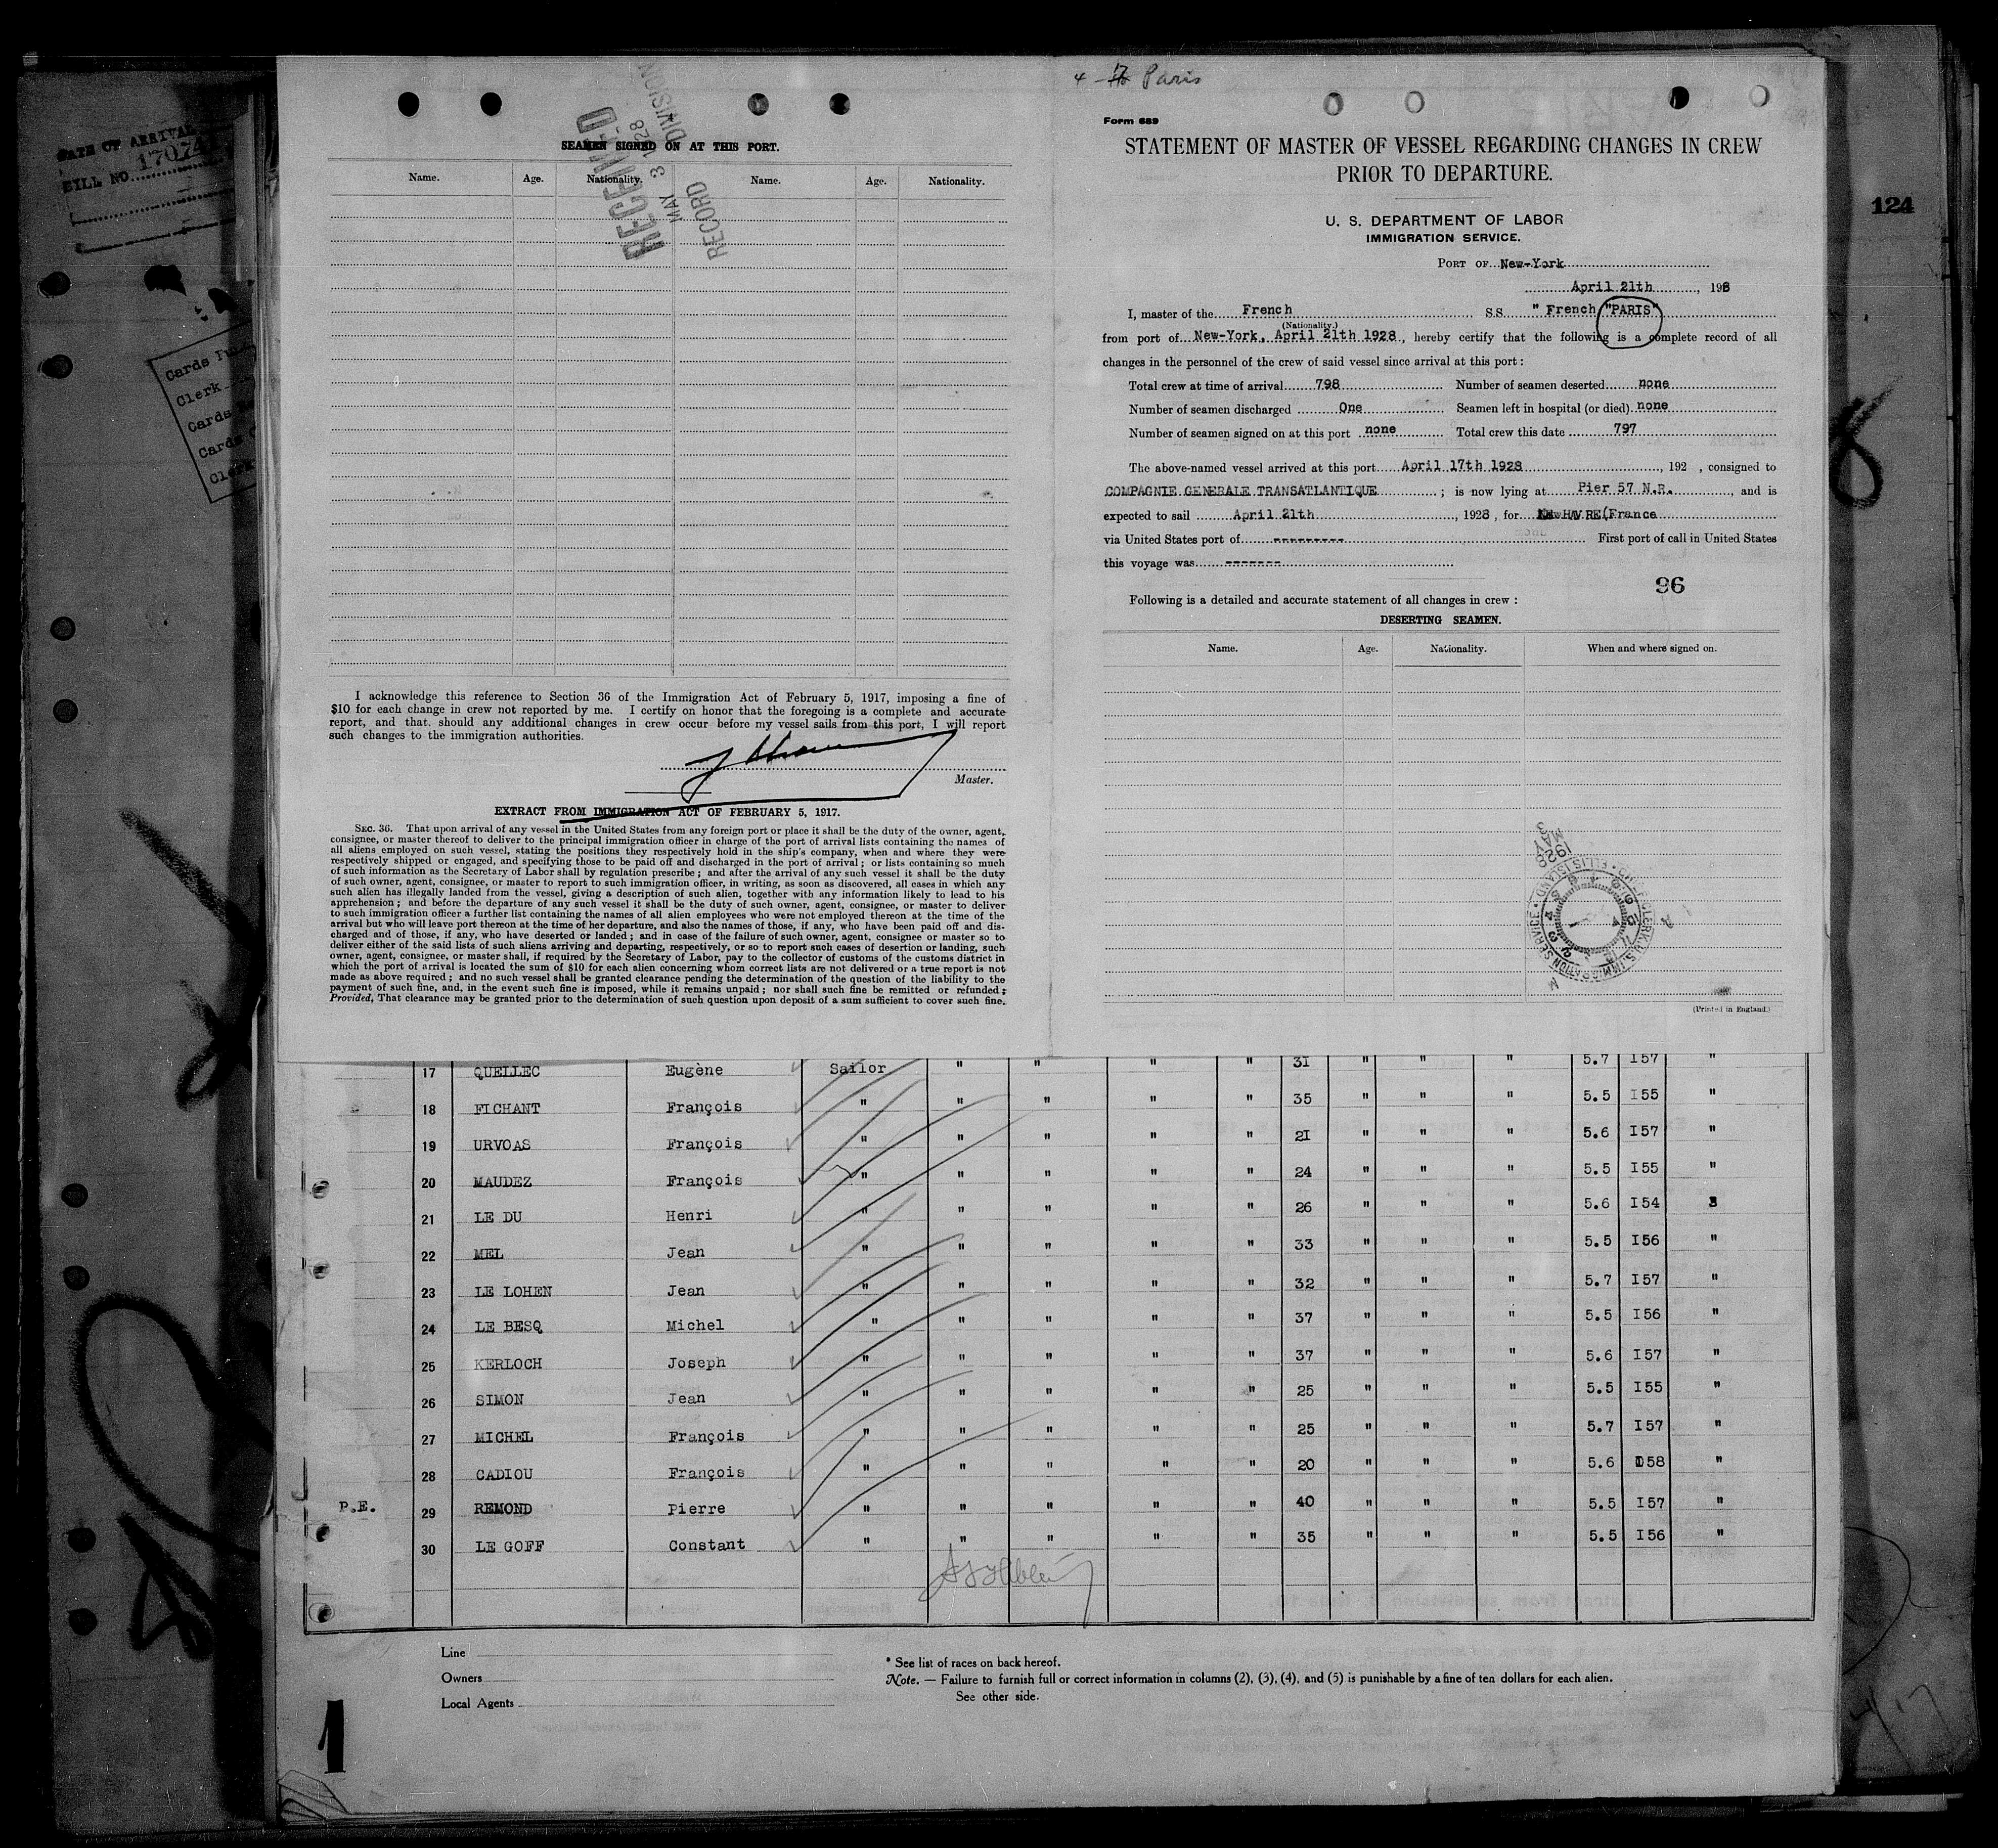 4 - 17 Paris
DATE OF ARRIVAL
BILL NO.
Cards
Clerk
Cards
Cards
Clerk
124
SEAMEN SIGNED ON AT THIS PORT.
Name. Age. Nationality. Name. Age. Nationality.
RECEIVED
MAY 3 1928
RECORD DIVISION
I acknowledge this reference to Section 36 of the Immigration Act of February 5, 1917, imposing a fine of
$10 for each change in crew not reported by me. I certify on honor that the foregoing is a complete and accurate
report, and that. should any additional changes in crew occur before my vessel sails from this port, I will report
such changes to the immigration authorities.
Master.
EXTRACT FROM IMMIGRATION ACT OF FEBRUARY 5, 1917.
SEC. 36. That upon arrival of any vessel in the United States from any foreign port or place it shall be the duty of the owner, agent,
consignee, or master thereof to deliver to the principal immigration officer in charge of the port of arrival lists containing the names of
all aliens employed on such vessel, stating the positions they respectively hold in the ship's company, when and where they were
respectively shipped or engaged, and specifying those to be paid off and discharged in the port of arrival; or lists containing so much
of such information as the Secretary of Labor shall by regulation prescribe; and after the arrival of any such vessel it shall be the duty
of such owner, agent, consignee, or master to report to such immigration officer, in writing, as soon as discovered, all cases in which any
such alien has illegally landed from the vessel, giving a description of such alien, together with any information likely to lead to his
apprehension; and before the departure of any such vessel it shall be the duty of such owner, agent, consignee, or master to deliver
to such immigration officer a further list containing the names of all alien employees who were not employed thereon at the time of the
arrival but who will leave port thereon at the time of her departure, and also the names of those, if any, who have been paid off and dis-
charged and of those, if any, who have deserted or landed; and in case of the failure of such owner, agent, consignee or master so to
deliver either of the said lists of such aliens arriving and departing, respectively, or so to report such cases of desertion or landing, such
owner, agent, consignee, or master shall, if required by the Secretary of Labor, pay to the collector of customs of the customs district in
which the port of arrival is located the sum of $10 for each alien concerning whom correct lists are not delivered or a true report is not
made as above required; and no such vessel shall be granted clearance pending the determination of the question of the liability to the
payment of such fine, and, in the event such fine is imposed, while it remains unpaid; nor shall such fine be remitted or refunded;
Provided, That clearance may be granted prior to the determination of such question upon deposit of a sum sufficient to cover such fine.
Form 689
STATEMENT OF MASTER OF VESSEL REGARDING CHANGES IN CREW
PRIOR TO DEPARTURE.
U. S. DEPARTMENT OF LABOR
IMMIGRATION SERVICE.
PORT OF New-York
April 21th, 1928
I, master of the French S.S " French "PARIS"
(Nationality.)
from port of New-York, April 21th 1928, hereby certify that the following is a complete record of all
changes in the personnel of the crew of said vessel since arrival at this port:
Total crew at time of arrival 798 Number of seamen deserted none
Number of seamen discharged One Seamen left in hospital (or died) none
Number of seamen signed on at this port none Total crew this date 797
The above-named vessel arrived at this port April 17th 1928, 192 , consigned to
COMPAGNIE GENERALE TRANSATLANTIQUE; is now lying at Pier 57 N.R., and is
expected to sail April 21th, 1928, for HAVRE(France
via United States port of --------- First port of call in United States
this voyage was -------
96
Following is a detailed and accurate statement of all changes in crew:
DESERTING SEAMEN.
Name. Age. Nationality. When and where signed on.
MAY 3 1928
(Printed in England.)
17 QUELLEC Eugène Sailor " " " " 31 " " " 5.7 I57 "
18 FICHANT François " " " " " 35 " " " 5.5 I55 "
19 URVOAS François " " " " " 2I " " " 5.6 I57 "
20 MAUDEZ François " " " " " 24 " " " 5.5 I55 "
21 LE DU Henri " " " " " 26 " " " 5.6 I54 3
22 MEL Jean " " " " " 33 " " " 5.5 I56 "
23 LE LOHEN Jean " " " " " 32 " " " 5.7 I57 "
24 LE BESQ Michel " " " " " 37 " " " 5.5 I56 "
25 KERLOCH Joseph " " " " " 37 " " " 5.6 I57 "
26 SIMON Jean " " " " " 25 " " " 5.5 I55 "
27 MICHEL François " " " " " 25 " " " 5.7 I57 "
28 CADIOU François " " " " " 20 " " " 5.6 I58 "
P.E. 29 REMOND Pierre " " " " " 40 " " " 5.5 I57 "
30 LE GOFF Constant " " " " " 35 " " " 5.5 I56 "
Line
Owners
Local Agents
* See list of races on back hereof.
Note. — Failure to furnish full or correct information in columns (2), (3), (4), and (5) is punishable by a fine of ten dollars for each alien.
See other side.
1